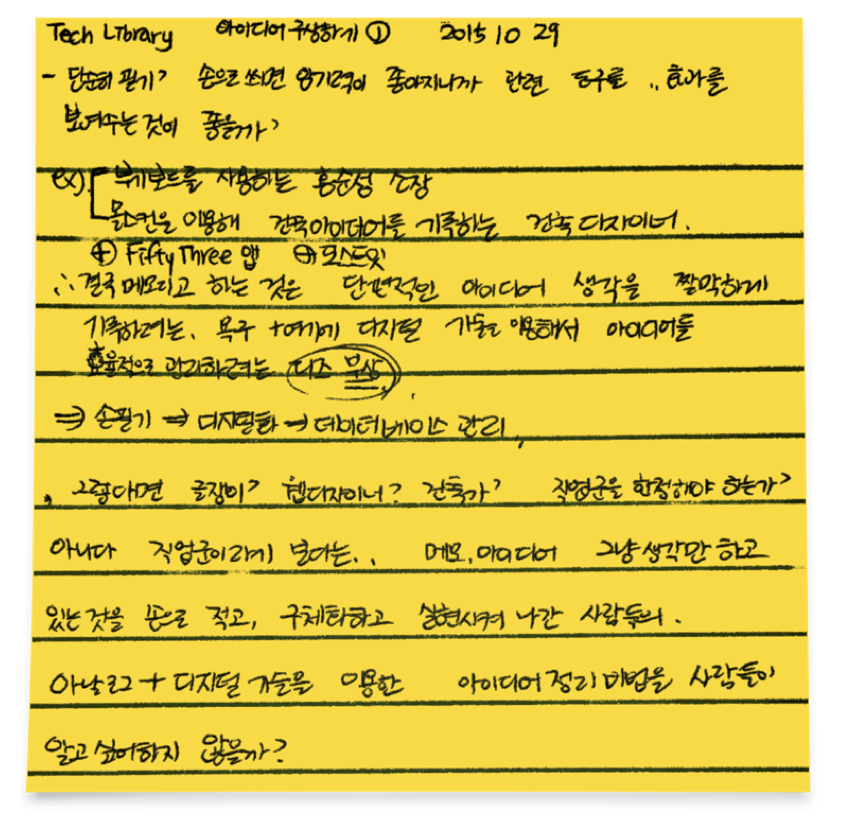 Tech Library 아이디어 구상하기 ① 2015 10 29
- 단순히 필기? 손으로 쓰면 암기력이 좋아지니까 관련 도구를 .. 효과를
보여주는것이 좋을까?
ex). 부기보드를 사용하는 홍순성 소장
몰스킨을 이용해 건축아이디어를 기록하는 건축 디자이너.
⊕ Fifty Three 앱 ⊕ 포스트잇
∴ 결국 메모라고 하는 것은 단편적인 아이디어 생각을 짤막하게
기록하려는, 욕구 + 여기에 디지털 기술을 이용해서 아이디어를
효율적으로 관리하려는
⇒ 손필기 ⇒ 디지털화 → 데이터베이스 관리,
, 그렇다면 글쟁이? 웹디자이너? 건축가? 직업군을 한정해야 하는가?
아니다 직업군이라기 보다는.. 메모, 아이디어 그냥 생각만 하고
있는 것을 손으로 적고, 구체화하고 실현시켜 나간 사람들의.
아날로그 + 디지털 기술을 이용한 아이디어 정리 비법을 사람들이
알고 싶어하지 않을까?